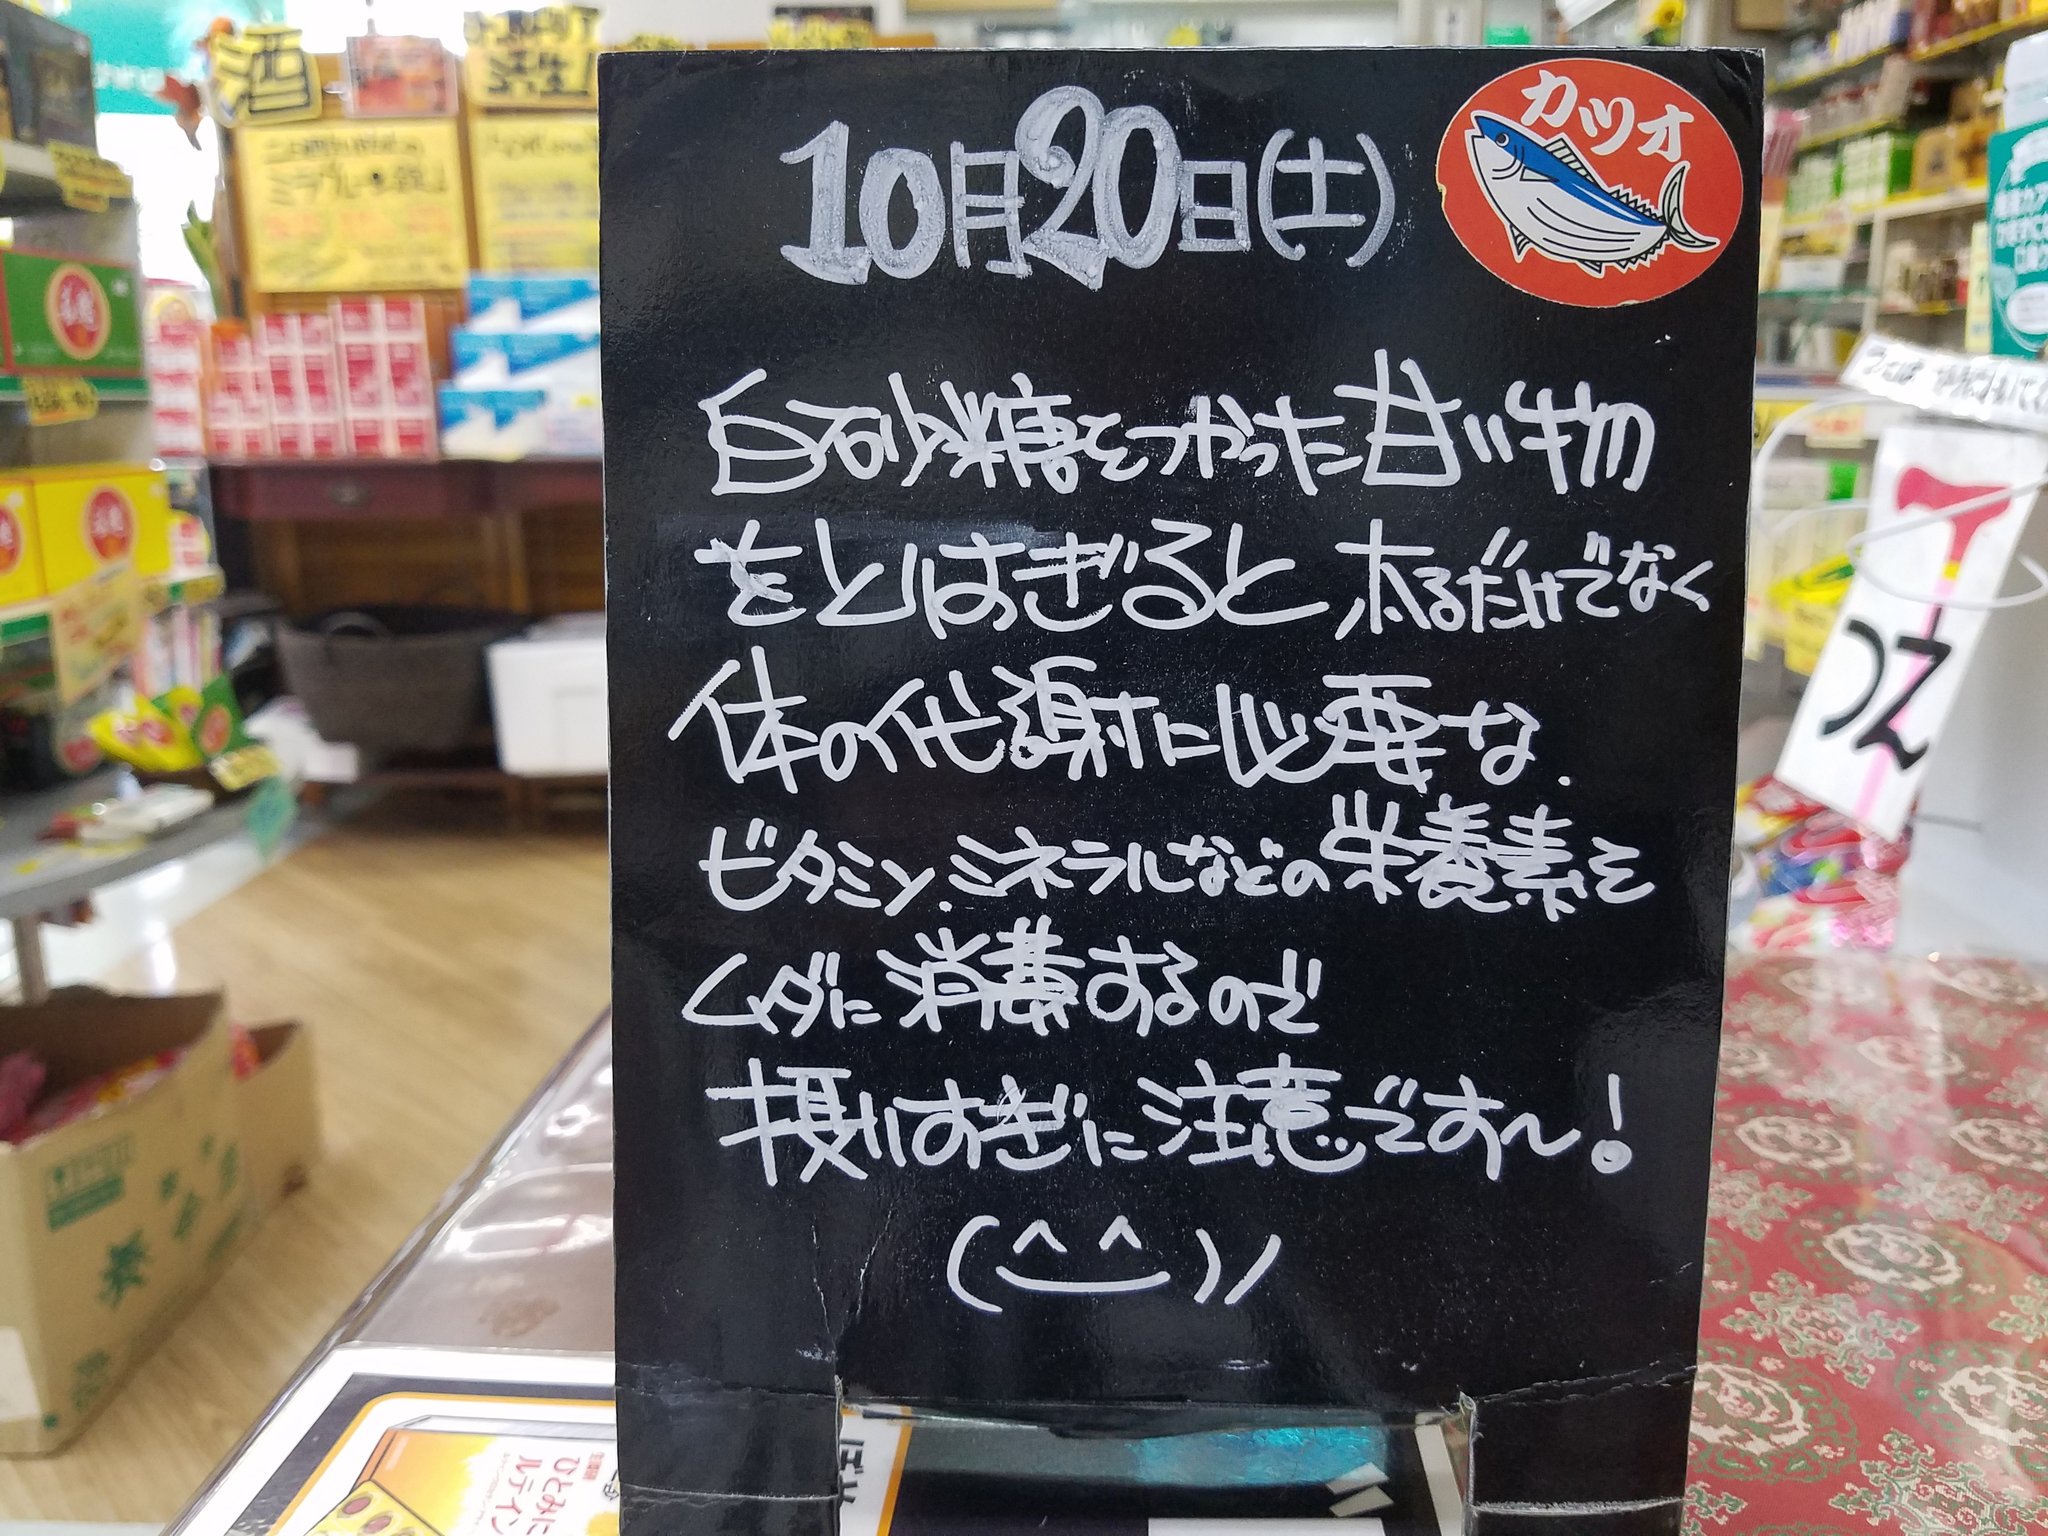 10月20日(土)
カツオ
白砂糖をつかった甘い物
をとりすぎると太るだけでなく
体の代謝に必要な
ビタミン、ミネラルなどの栄養素を
ムダに消費するので
摂りすぎに注意です〜!
(^‿^)/
酒
つえ
ひとみに
ルテイン